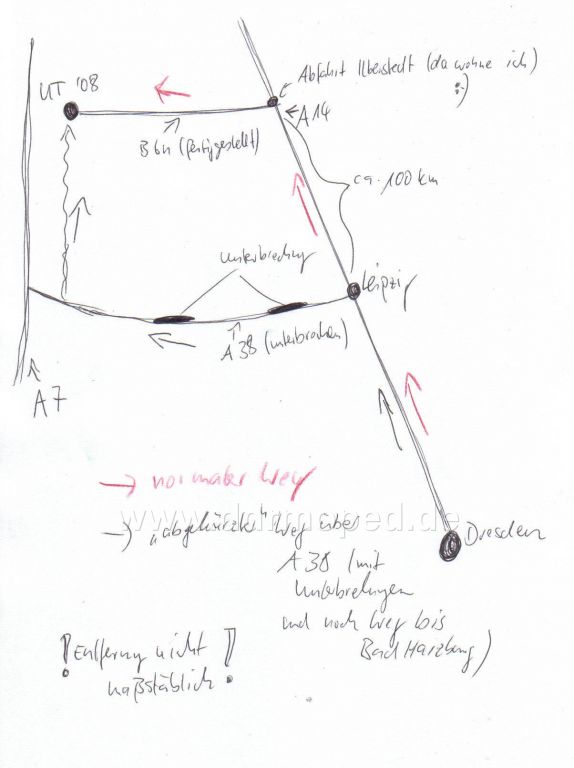 Abfahrt Ilberstedt (da wohne ich)
:)
UT '08
A14
B6n (fertiggestellt)
ca. 100 km
Unterbrechung
Leipzig
A38 (unterbrochen)
A7
→ normaler Weg
www.dermoped.de
→ „abgekürzter" Weg über
Dresden
A38 (mit
Unterbrechungen
und noch Weg bis
Bad Harzburg)
! Entfernung nicht !
maßstäblich